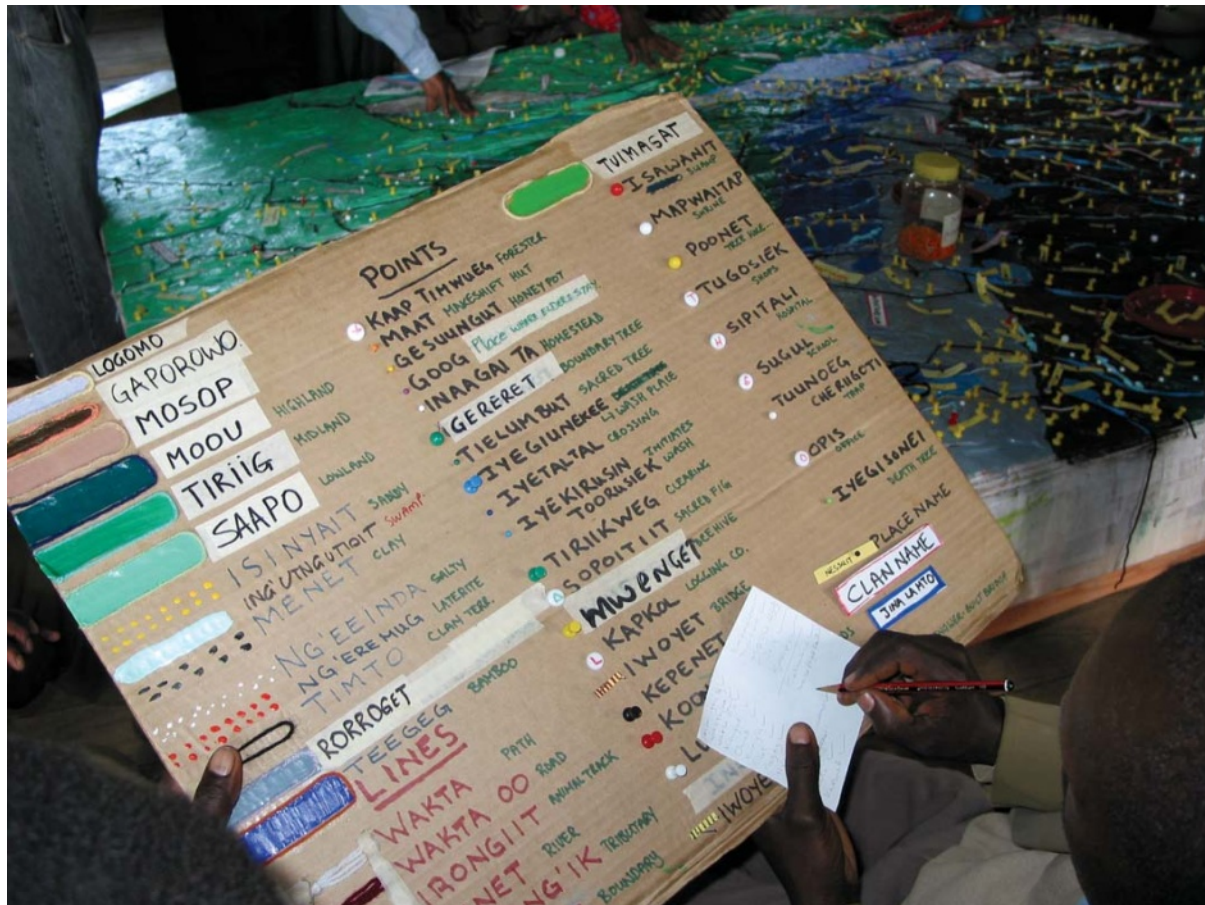 LOGOMO
GAPOROWO.
MOSOP HIGHLAND
MOOU MIDLAND
TIRIIG LOWLAND
SAAPO
ISINYAIT SANDY
ING'UNGUTIOIT SWAMP
MENET CLAY
NG'EEINDA SALTY
NG'EREMUG LATERITE
TIMTO CLAN TERR.
RORROGET
TEEGEG BAMBOO
LINES
WAKTA PATH
WAKTA OO ROAD
IRONGIIT ANIMAL TRACK
NET RIVER
NG'IK TRIBUTARY
BOUNDARY
POINTS
KAAP TIMWUEG FORESTER
MAAT MAKESHIFT HUT
GESUUNGUT HONEYPOT
GOOG PLACE WHERE ELDERS STAY
INAAGAITA HOMESTEAD
GERERET BOUNDARY TREE
TIELUMBUT SACRED TREE
IYEGIUNEKEE WASH PLACE
IYETALTAL CROSSING
IYEKIRUSIN INITIATES
TOORUSIEK WASH
TIRIIKWEG CLEARING
SOPOITIIT SACRED FIG
MWENGET BEEHIVE
L KAPKOL LOGGING CO.
IWOYET BRIDGE
KEPENET
KOO
IWOYE
TUIMASAT
ISAWANIT SWAMP
MAPWAITAP SHRINE
POONET
TREE
T TUGOSIEK SHOPS
H SIPITALI HOSPITAL
S SUGUL SCHOOL
TUUNOEG
CHERIIGOTI TRAP
O OPIS OFFICE
IYEGISONEI DEATH TREE
NESSUIT PLACE NAME
CLAN NAME
JINA LA MTO